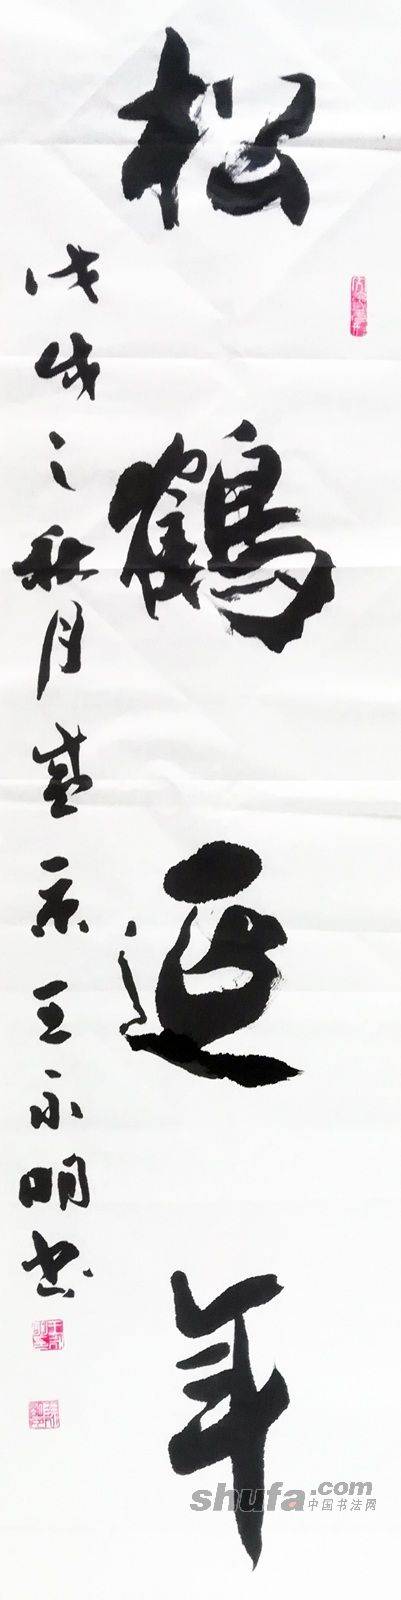 松鹤延年
戊戌之秋月盛京王永明书
shufa.com
中国书法网